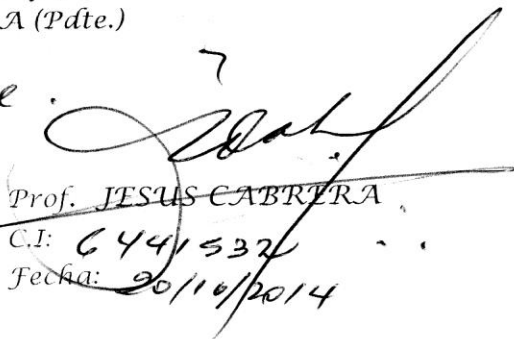 A (Pdte.)
Prof. JESUS CABRERA
C.I: 6441532
Fecha: 20/10/2014